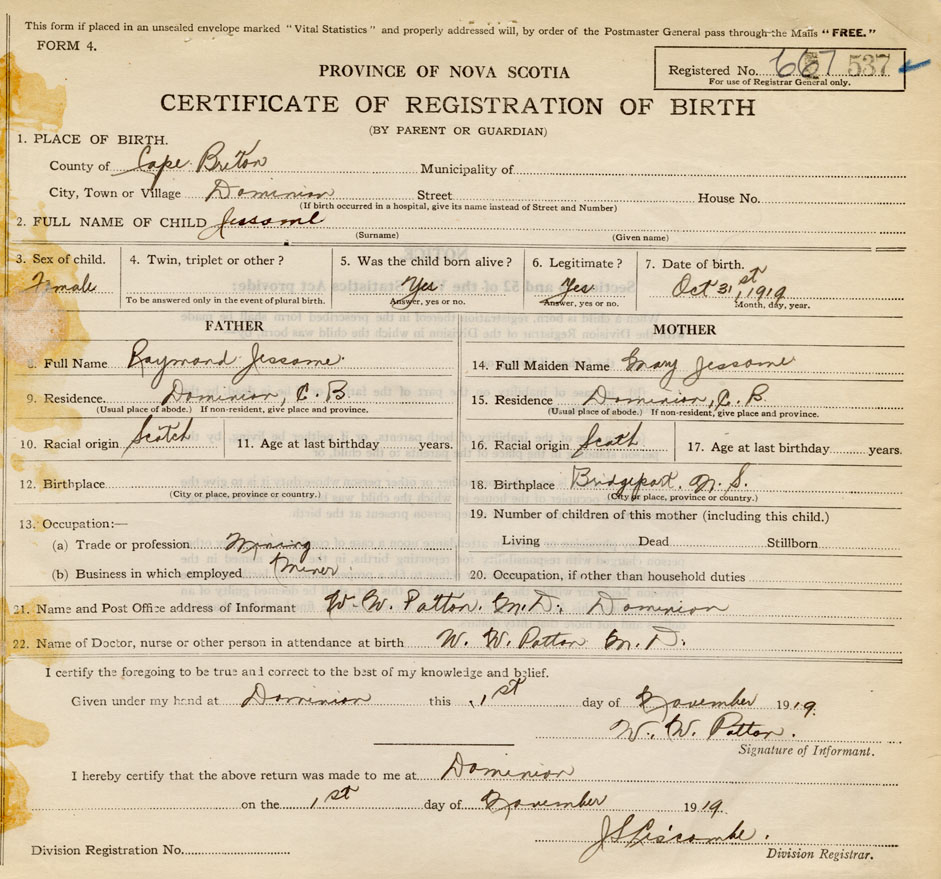 This form if placed in an unsealed envelope marked "Vital Statistics" and properly addressed will, by order of the Postmaster General pass through the Mails "FREE."
FORM 4.
Registered No. 667 537
For use of Registrar General only.
PROVINCE OF NOVA SCOTIA
CERTIFICATE OF REGISTRATION OF BIRTH
(BY PARENT OR GUARDIAN)
1. PLACE OF BIRTH.
County of Cape Breton Municipality of
City, Town or Village Dominion Street House No.
(If birth occurred in a hospital, give its name instead of Street and Number)
2. FULL NAME OF CHILD Jessome
(Surname) (Given name)
3. Sex of child. 4. Twin, triplet or other? 5. Was the child born alive? 6. Legitimate? 7. Date of birth.
Female Yes Yes Oct 31st, 1919
To be answered only in the event of plural birth. Answer, yes or no. Answer, yes or no. Month, day, year.
FATHER MOTHER
8. Full Name Raymond Jessome. 14. Full Maiden Name Mary Jessome
9. Residence. Dominion, C. B. 15. Residence Dominion, C. B
(Usual place of abode.) If non-resident, give place and province. (Usual place of abode.) If non-resident, give place and province.
10. Racial origin Scotch 11. Age at last birthday years. 16. Racial origin Scotch 17. Age at last birthday years.
12. Birthplace 18. Birthplace Bridgeport, N. S.
(City or place, province or country.) (City or place, province or country.)
13. Occupation:— 19. Number of children of this mother (including this child.)
(a) Trade or profession Mining Living Dead Stillborn
(b) Business in which employed Miner 20. Occupation, if other than household duties
21. Name and Post Office address of Informant W. W. Patton. M.D. Dominion
22. Name of Doctor, nurse or other person in attendance at birth W. W. Patton M. D.
I certify the foregoing to be true and correct to the best of my knowledge and belief.
Given under my hand at Dominion this 1st day of November 1919.
W. W. Patton.
Signature of Informant.
I hereby certify that the above return was made to me at Dominion
on the 1st day of November 1919.
J S Liscombe.
Division Registration No. Division Registrar.